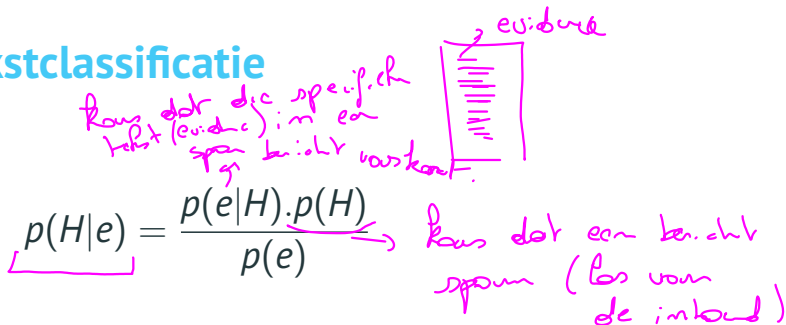 kstclassificatie
evidence
kans dat die specifiek
tekst (evidence) in een
spam bericht voorkomt.
p(H|e) = p(e|H).p(H) / p(e)
kans dat een bericht
spam (los van
de inhoud)